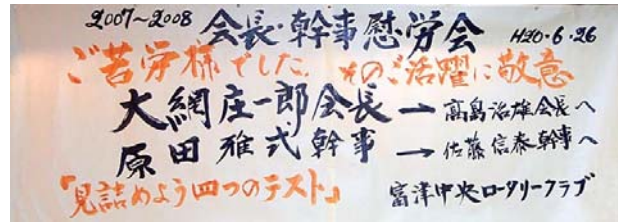 2007~2008 会長・幹事慰労会 H20・6・26
ご苦労様でした。そのご活躍に敬意
大網庄一郎会長→高島治雄会長へ
原田雅式幹事→佐藤信泰幹事へ
「見詰めよう四つのテスト」 富津中央ロータリークラブ